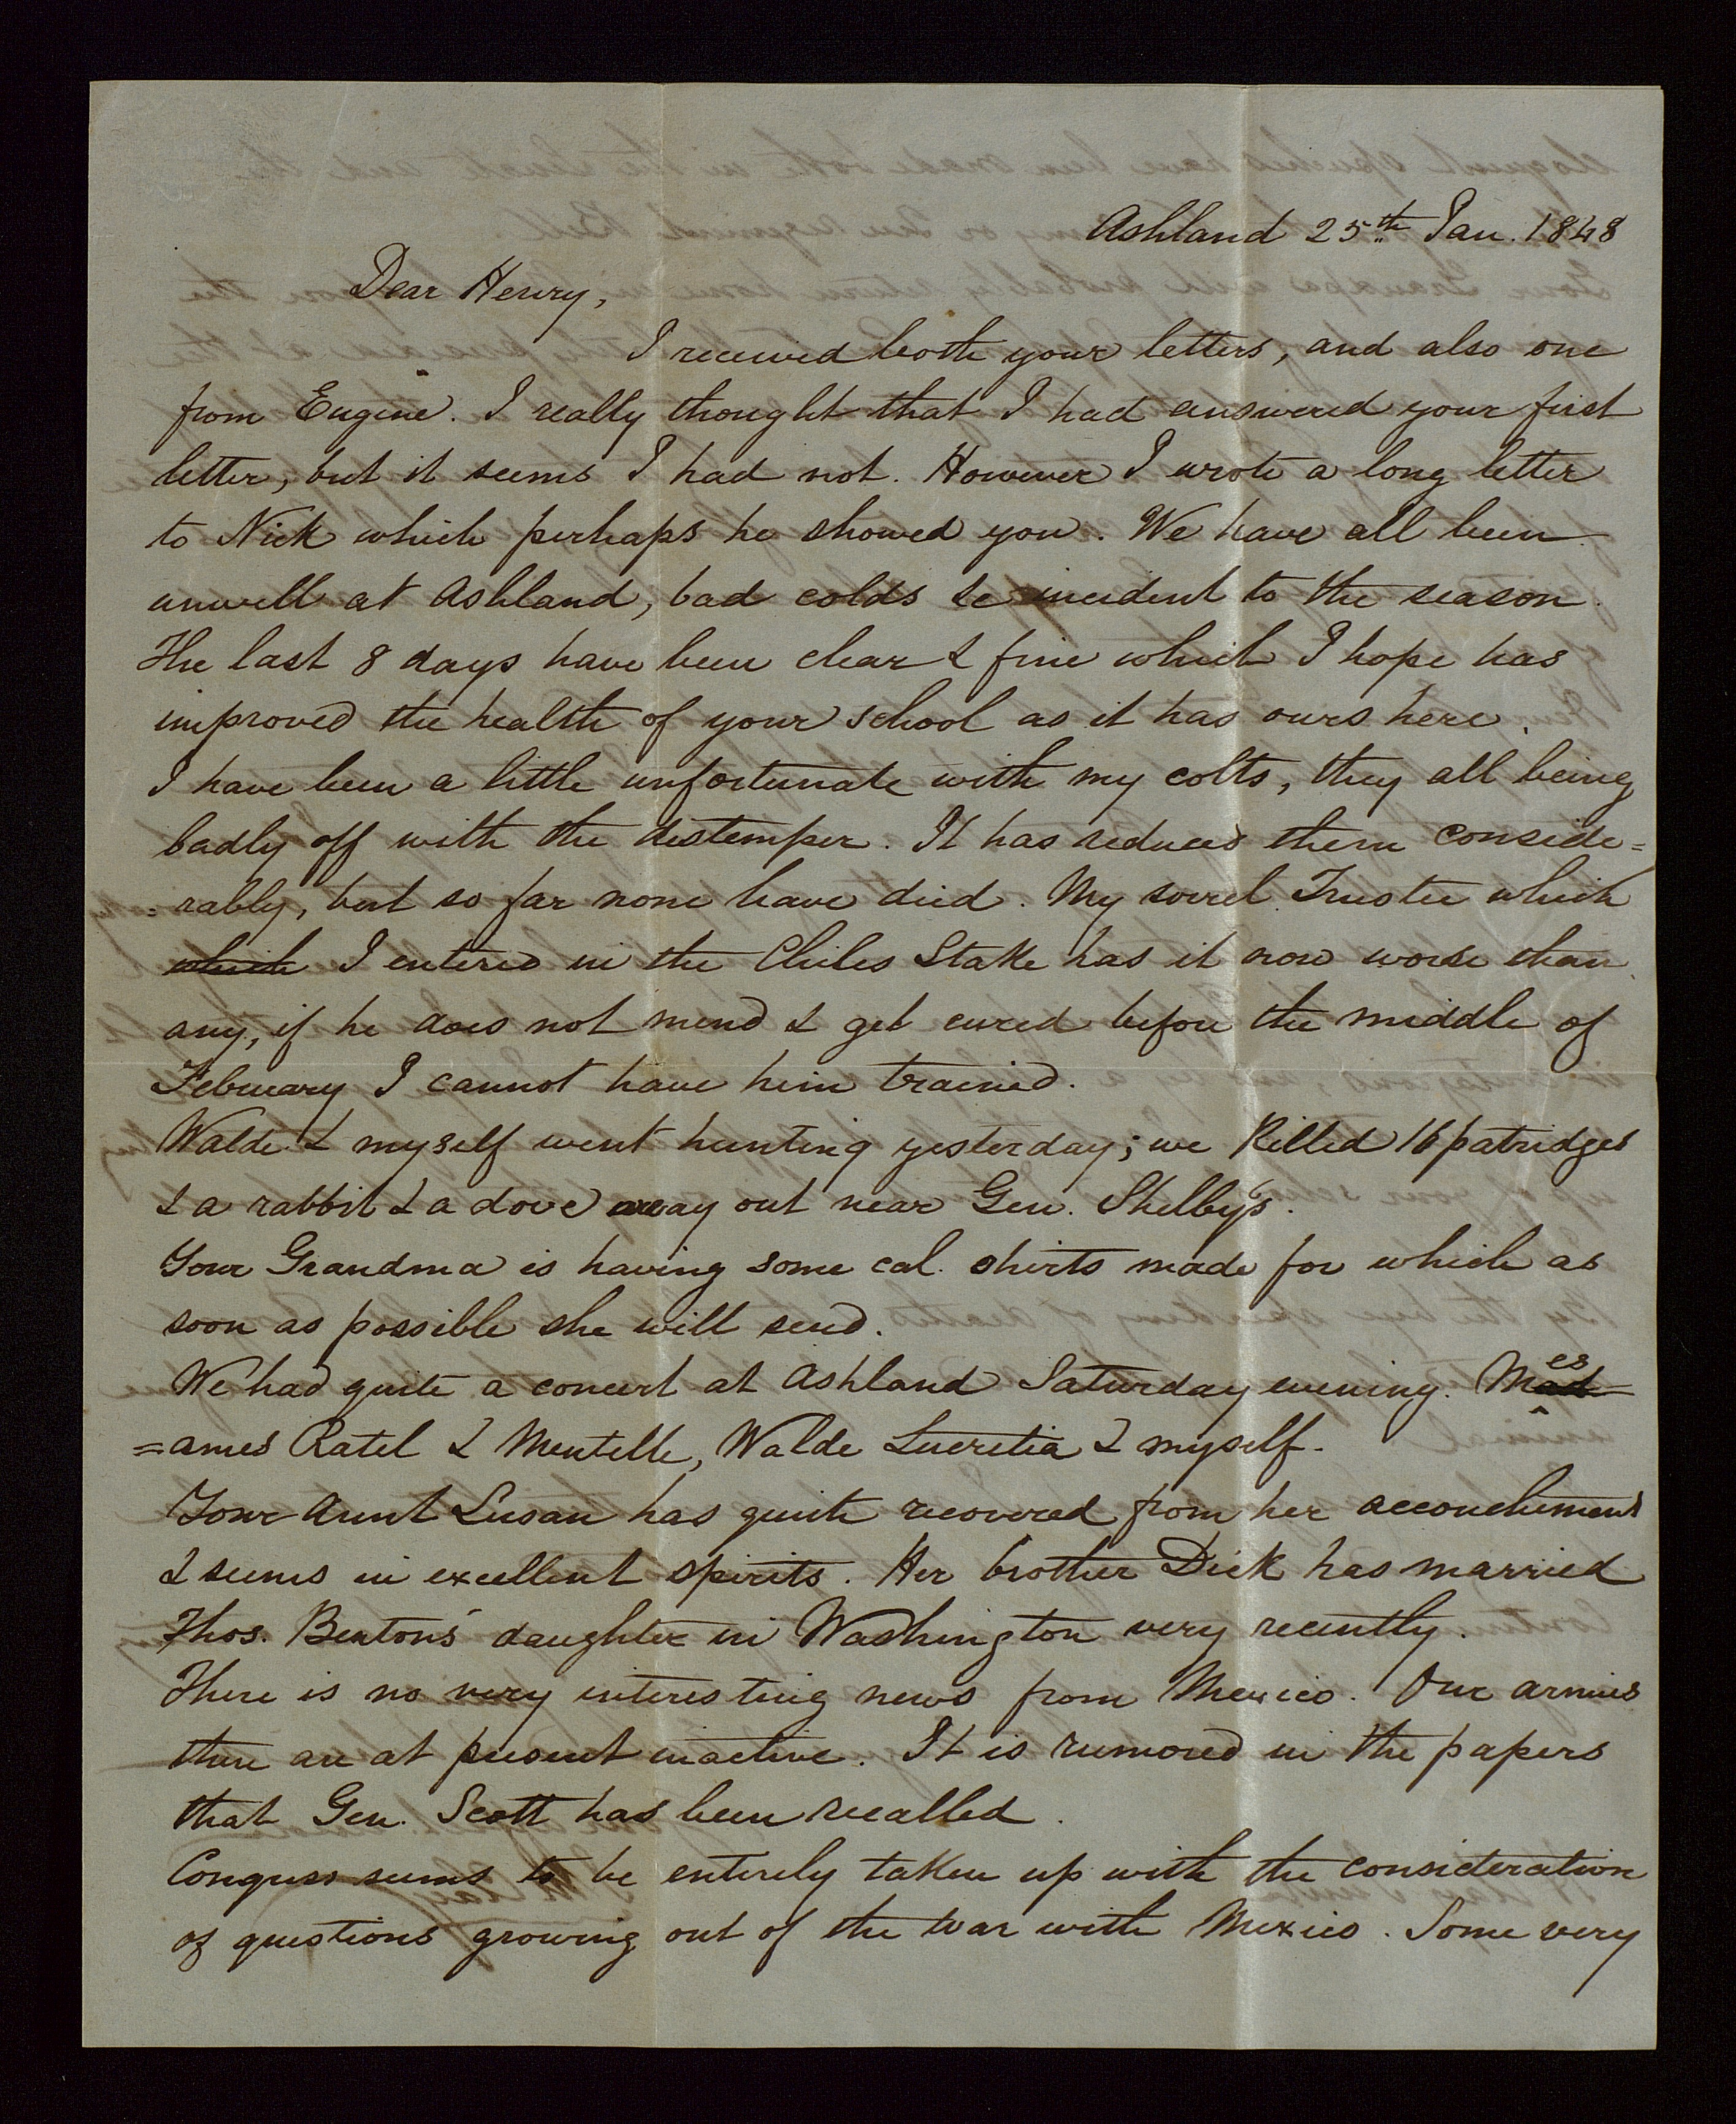 Ashland 25th Jan. 1848
Dear Henry,
I received both your letters, and also one
from Eugine. I really thought that I had answered your first
letter, but it seems I had not. However I wrote a long letter
to Nick which perhaps he showed you. We have all been
unwell at Ashland, bad colds &c incident to the season.
The last 8 days have been clear & fine which I hope has
improved the health of your school as it has ours here.
I have been a little unfortunate with my colts, they all being
badly off with the distemper. It has reduced them conside=
=rably, but so far none have died. My sorrel Trustee which
which I entered in the Chiles Stake has it now worse than
any, if he does not mend & get cured before the middle of
February I cannot have him trained.
Walde & myself went hunting yesterday; we killed 16 patridges
& a rabbit & a dove away out near Gen. Shelby's.
Your Grandma is having some cal. shirts made for which as
soon as possible she will send.
We had quite a concert at Ashland Saturday evening. Mes
=ames Ratel & Mentelle, Walde Lucretia & myself.
Your Aunt Susan has quite recovered from her accouchement
& seems in excellent spirits. Her brother Dick has married
Thos. Benton's daughter in Washington very recently.
There is no very interesting news from Mexico. Our armies
there are at present inactive. It is rumored in the papers
that Gen. Scott has been recalled.
Congress seems to be entirely taken up with the consideration
of questions growing out of the war with Mexico. Some very